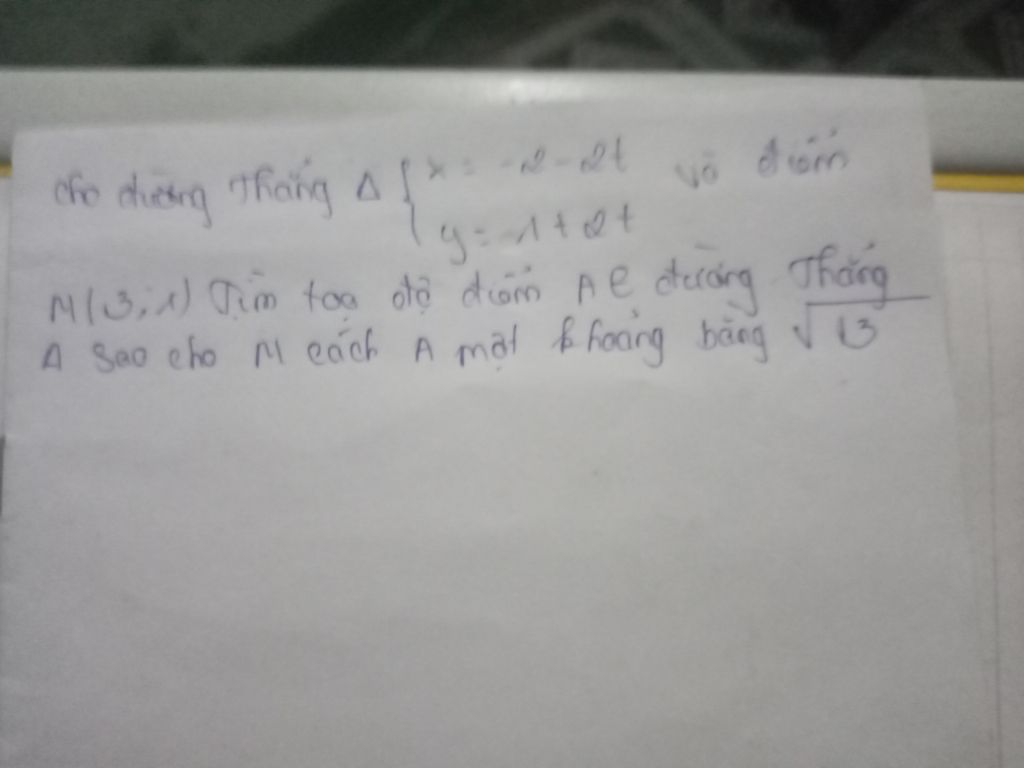 cho đường thẳng Δ { x = -2 - 2t và điểm
y = 1 + 2t
M(3;1) Tìm toạ độ điểm A ∈ đường thẳng
Δ sao cho M cách A một khoảng bằng √13